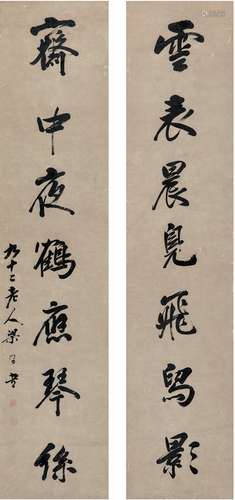 雲表晨凫飛舄影
齋中夜鶴應琴絲
九十二老人梁同書